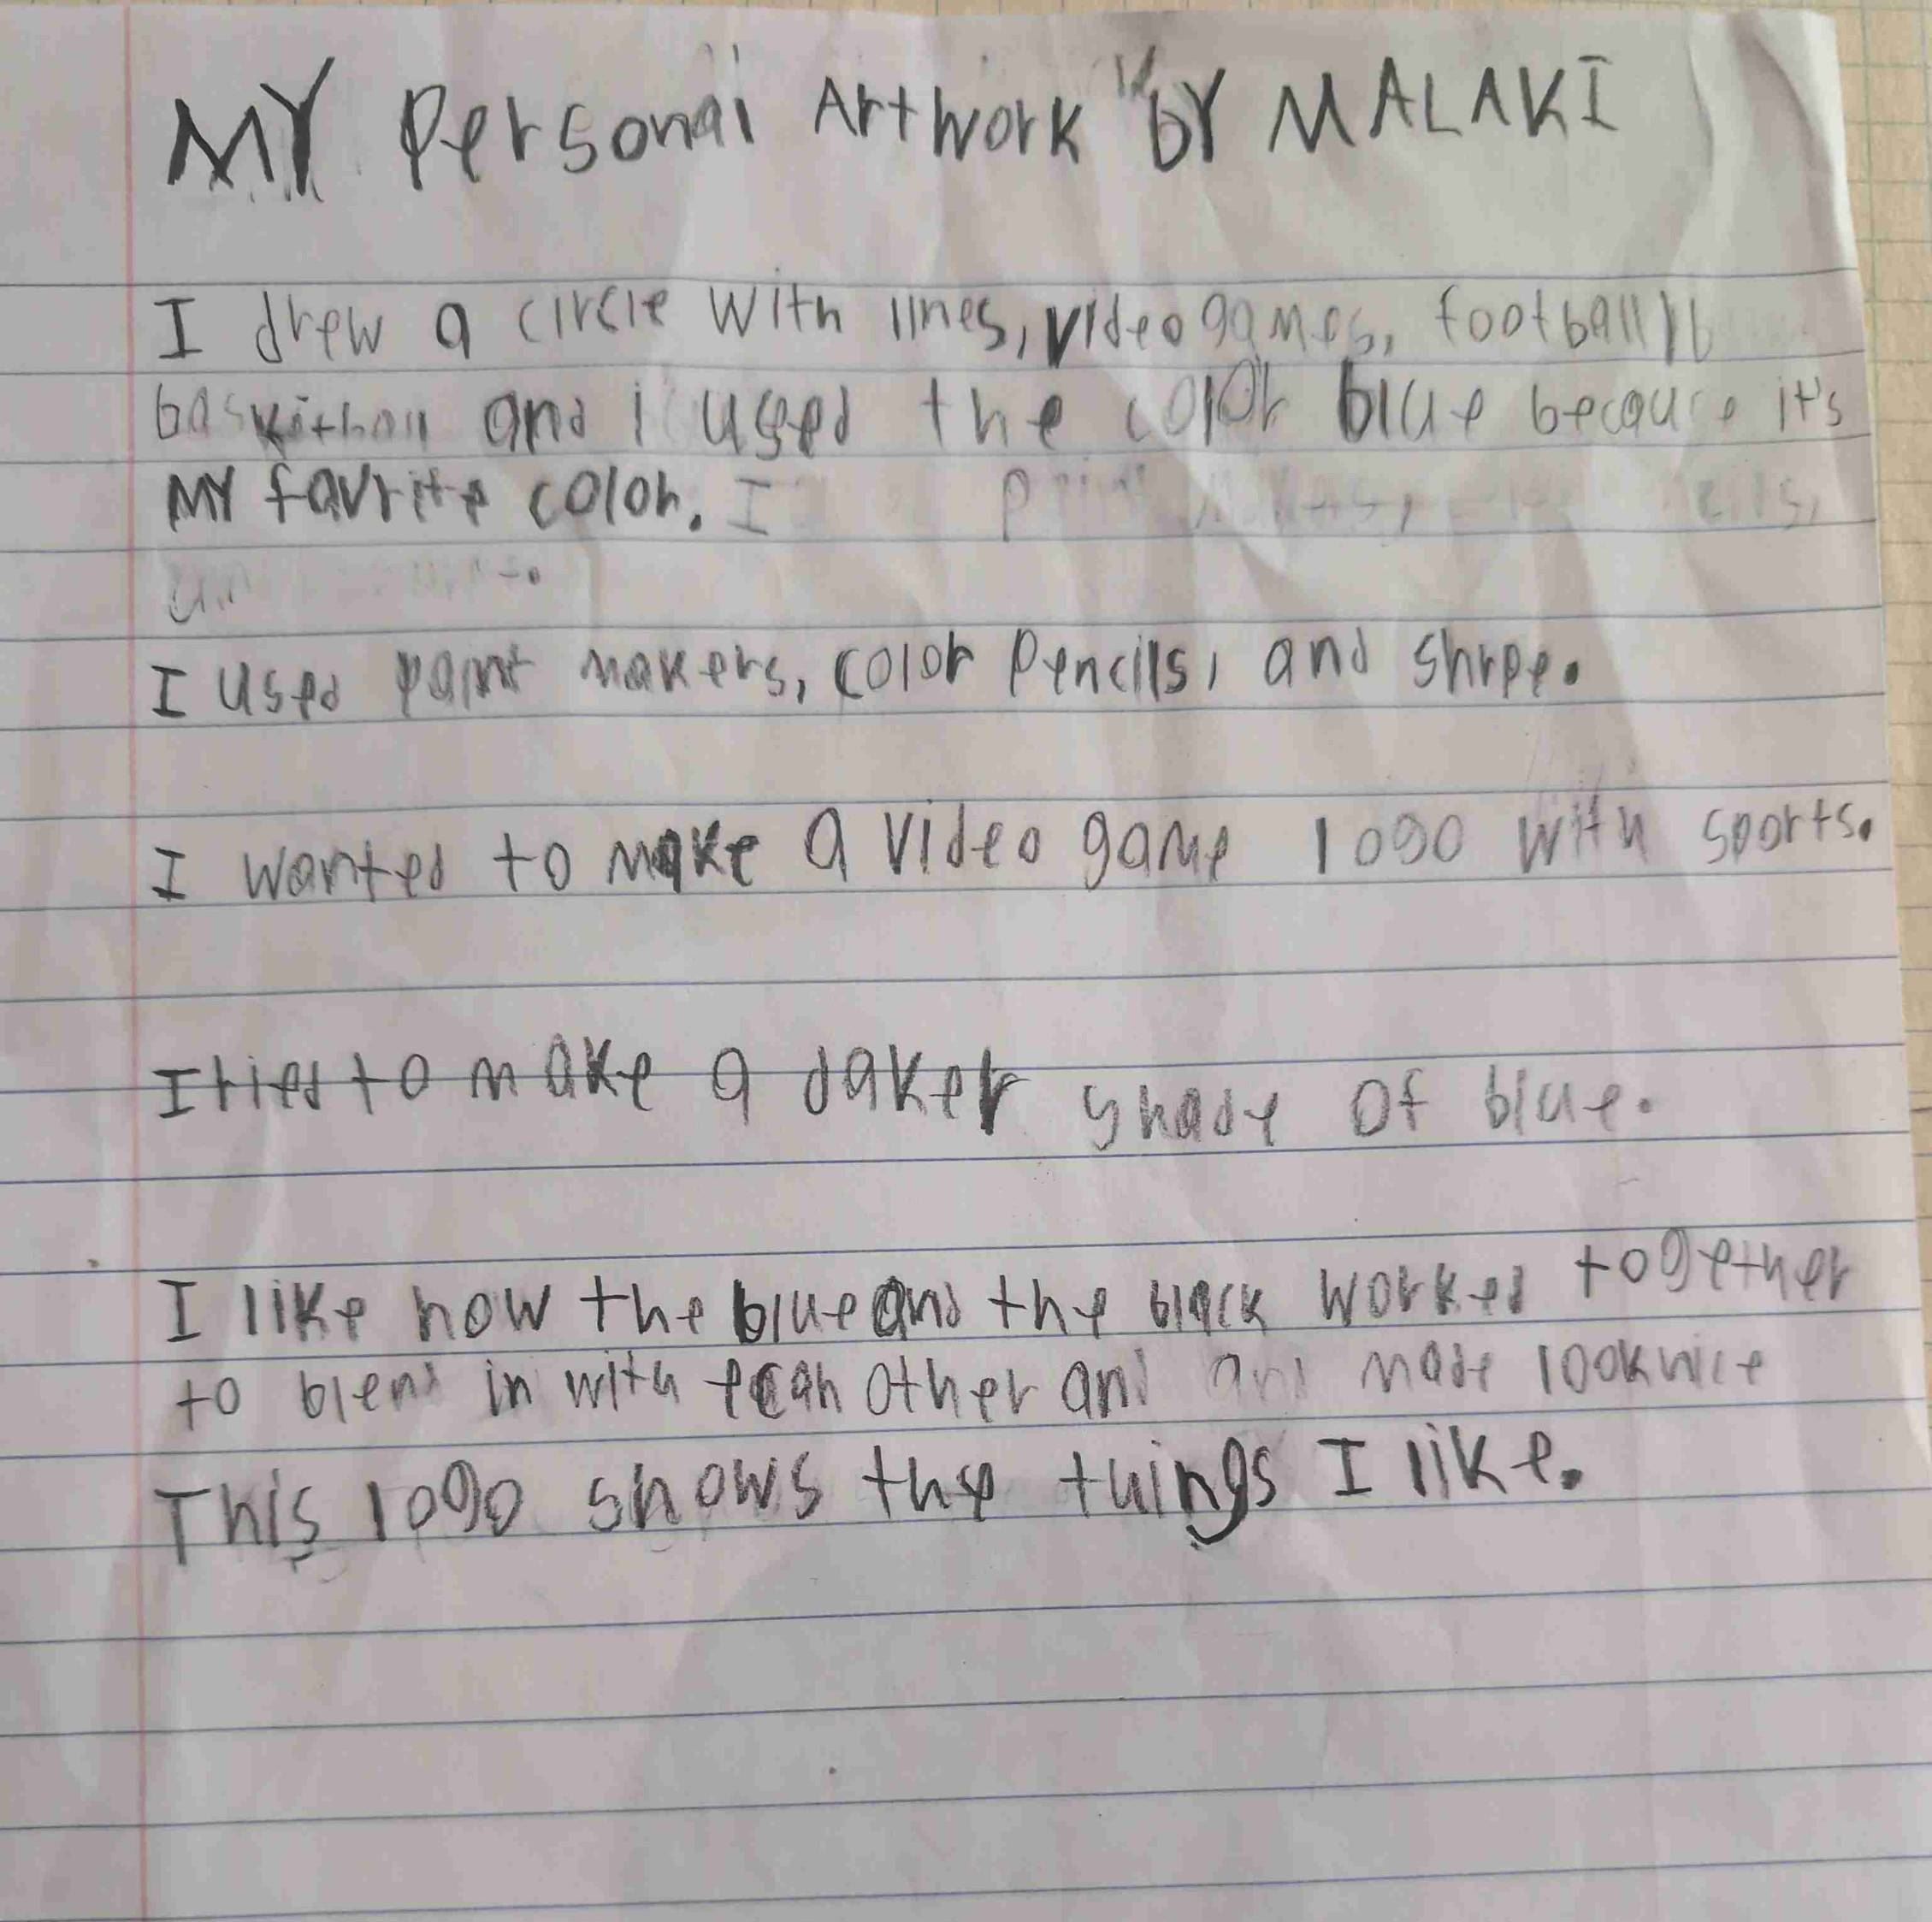 MY Personal Artwork by MALAKI
I drew a circle with lines, video games, football, b
baskitball and i used the color blue because it's
MY favrite color. I
I used paint makers, color pencils, and shrpe.
I wanted to make a video game logo with sports.
I tried to make a daker shade of blue.
I like how the blue and the black worked together
to blend in with ecah other and and made look nice
This logo shows the things I like.